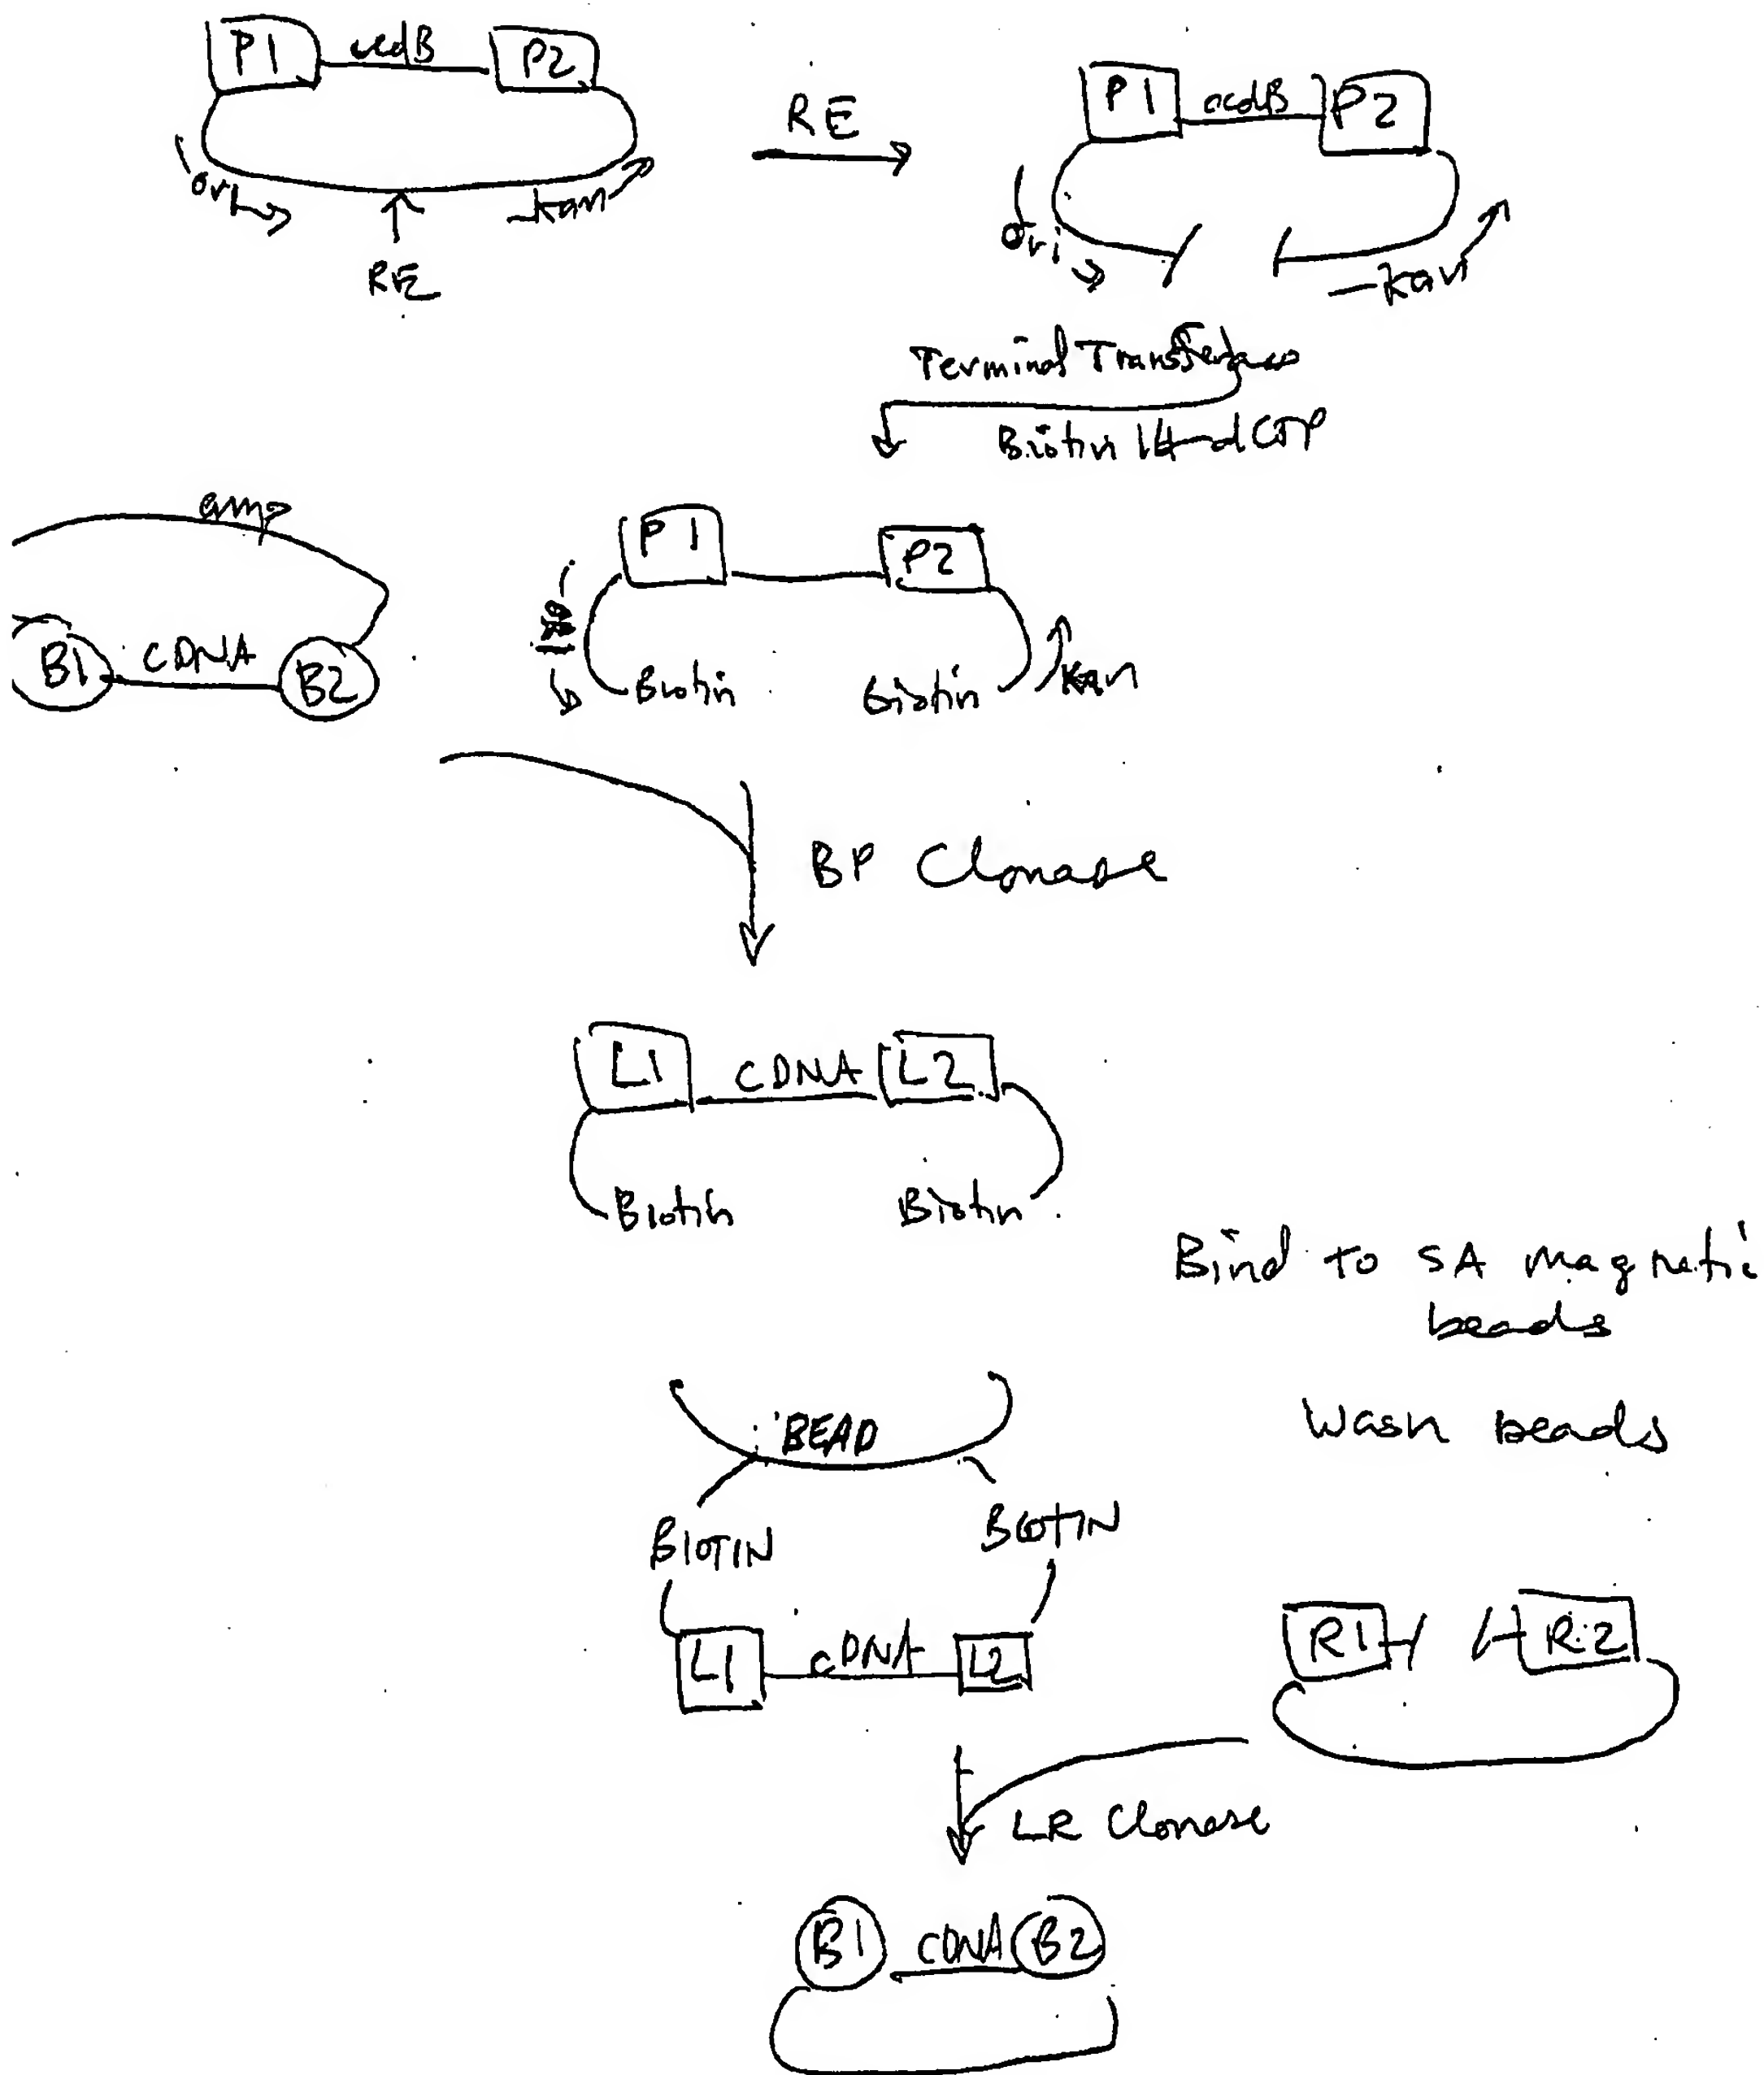 P1 ccdB P2
ori kan
RE
RE
P1 ccdB P2
ori kan
Terminal Transferase
Biotin 14-dCTP
amp
B1 CDNA B2
P1 P2
Biotin Biotin kan
BP Clonase
L1 CDNA L2
Biotin Biotin
Bind to SA magnetic
beads
Wash beads
BEAD
BIOTIN BIOTIN
L1 cDNA L2
R1 R2
LR Clonase
B1 CDNA B2